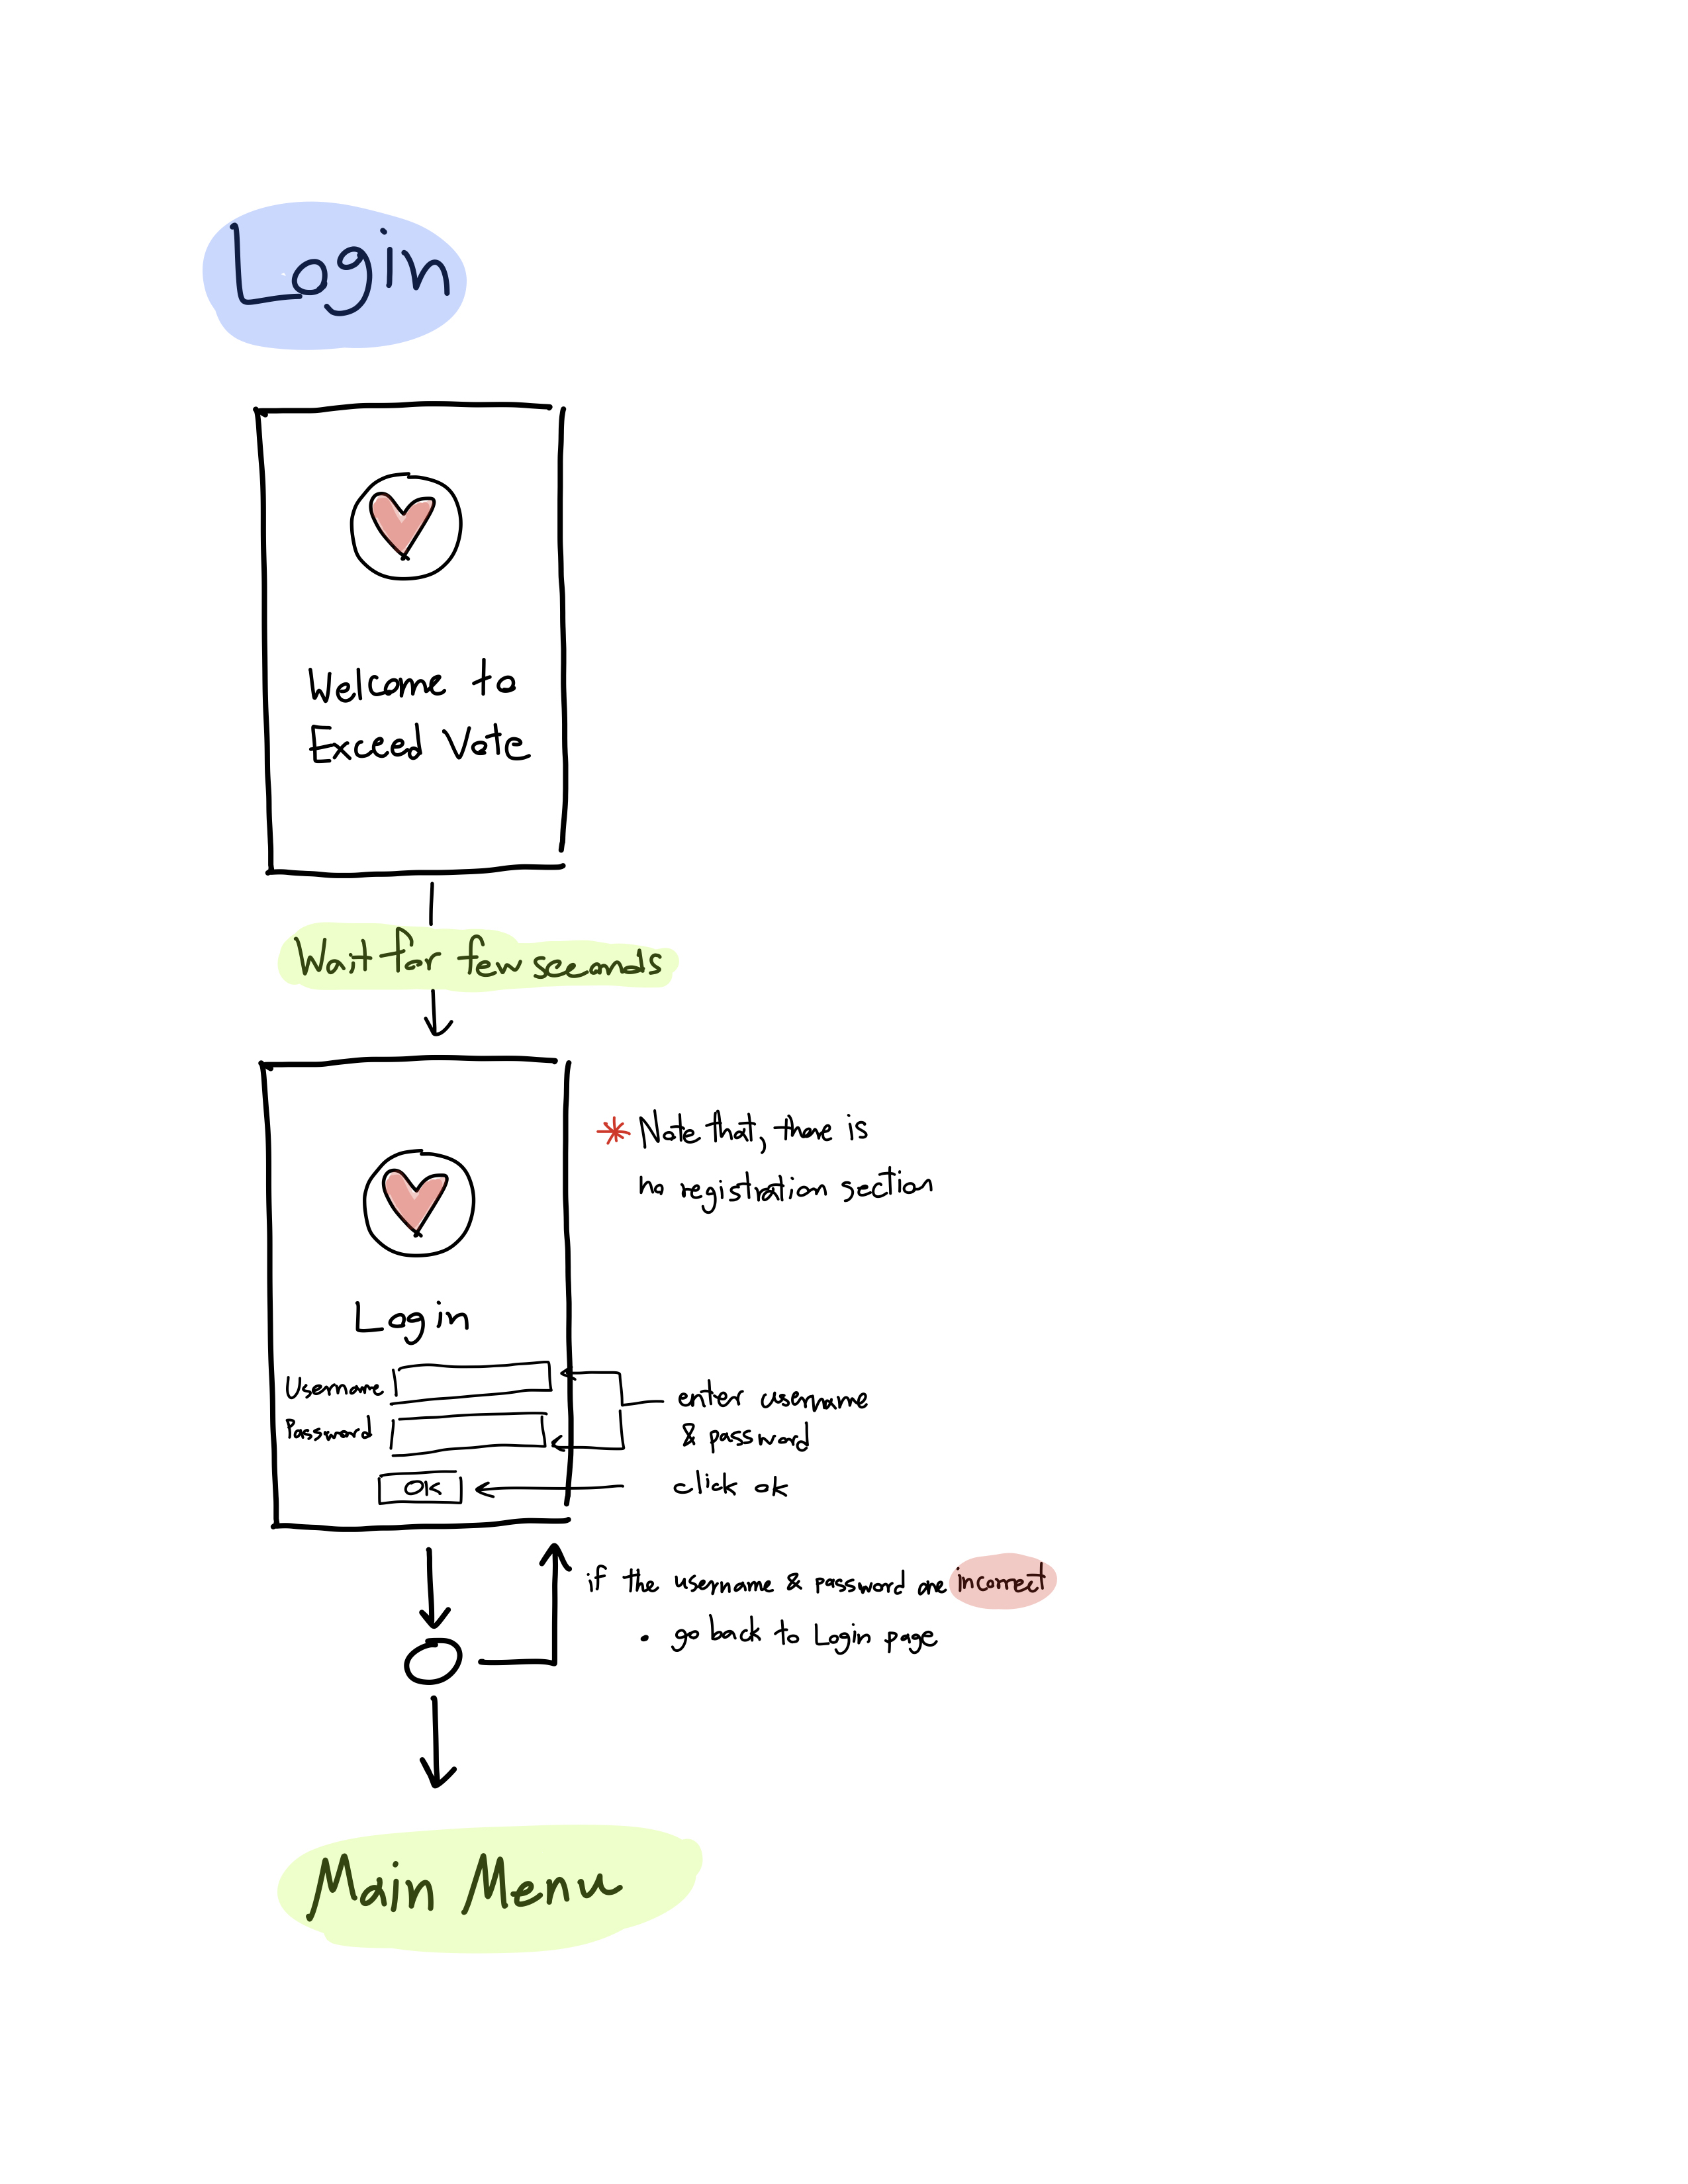 Login
Welcome to
Exceed Vote
Wait for few seconds
* Note that, there is
no registration section
Login
Username
Password
enter username
& password
OK
click ok
if the username & password are incorrect
• go back to Login page
Main Menu